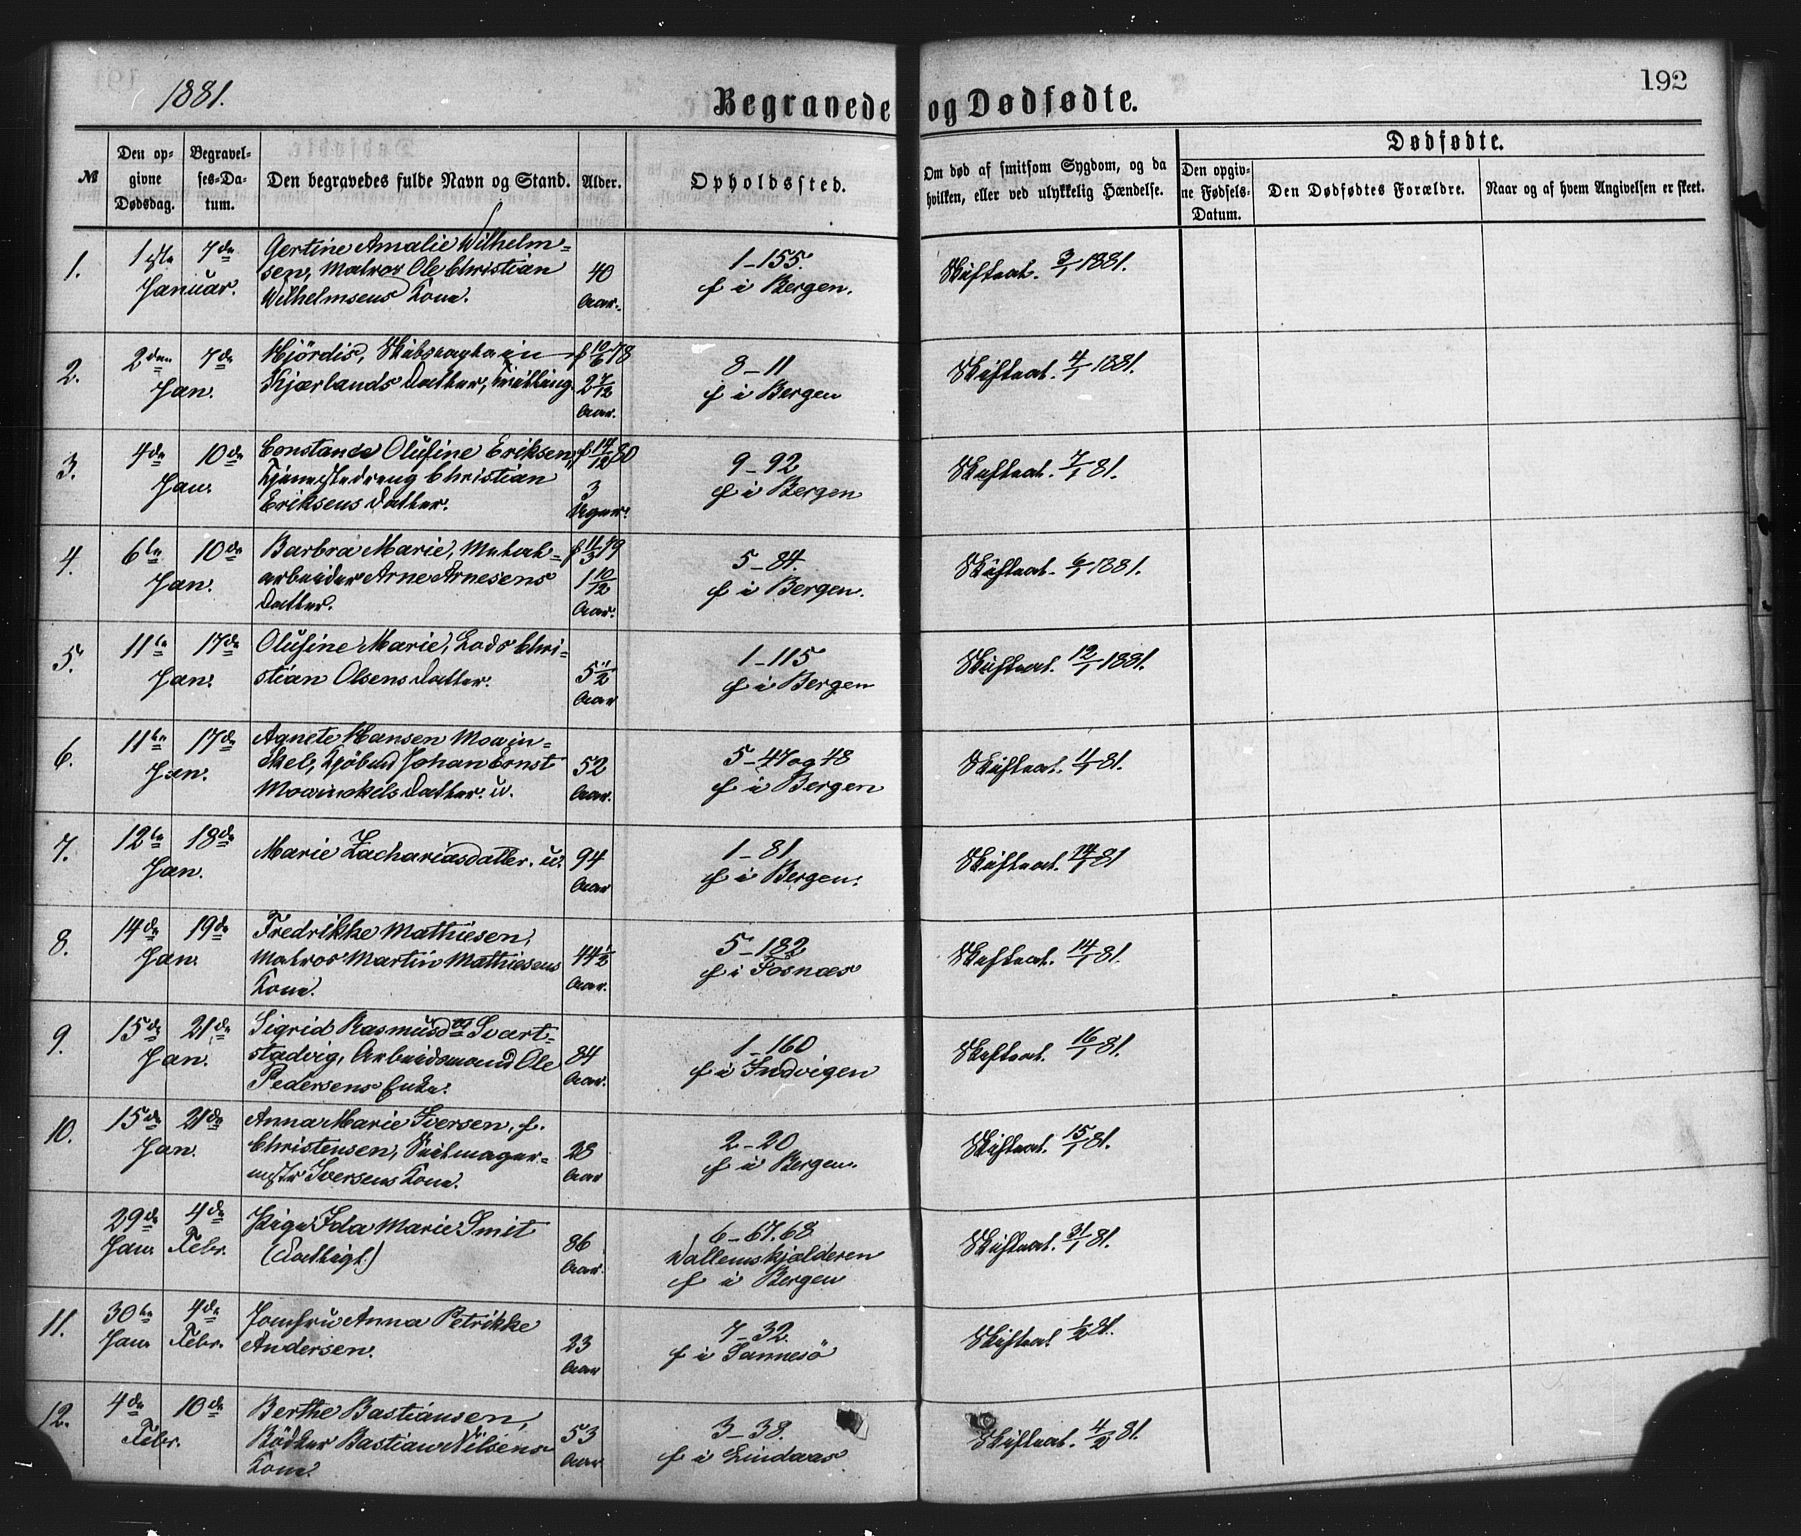 1881.
192
Begravede og Dødfødte.
№
Den opgivne Dødsdag.
Begravelses-Datum.
Den begravedes fulde Navn og Stand.
Alder.
Opholdssted.
Om død af smitsom Sygdom, og da hvilken, eller ved ulykkelig Hændelse.
Dødfødte.
Den opgivne Fødsels-Datum.
Den Dødfødtes Forældre.
Naar og af hvem Angivelsen er skeet.
1. 1ste 7de Gertine Amalie Wilhelm- 1-155.
Januar. sen, Matros Ole Christian 40 f i Bergen. Skifteat. 3/1 1881.
Wilhelmsens Kone. Aar.
2. 2den 7de Hjördis, Skibscaptain f 10/6 78 8-11 Skifteat. 4/1 1881.
Jan. Kjærlands Datter, Trilling. 2 7/12 f i Bergen
Aar.
3. 4de 10de Constance Olufine Eriksen, f 14/12 80 9-92 Skifteat. 7/1 81.
Jan. Christian 3 f i Bergen
Eriksens Datter. Uger.
4. 6te 10de Barbra Marie, f 11/3 79 5-84. Skifteat. 6/1 1881.
Jan. arbeider Arne Arnesens 1 10/12 f i Bergen.
Datter. Aar.
5. 11te 17de Olufine Marie, Lods Chri- 1-115 Skifteat. 12/1 1881.
Jan. stian Olsens Datter. 5 1/2 f i Bergen
Aar
6. 11te 17de Agnete Hansen Mowin- 5-47 og 48 Skifteat. 11/1 81.
Jan. ckel, Kjöbmd Johan Ernst 52 f i Bergen
Mowinckels Datter. u. Aar.
7. 12te 18de Marie Zachariasdatter. u. 94 1-81 Skifteat. 14/1 81
Jan. Aar f i Bergen.
8. 14de 19de Fredrikke Mathiesen, 5-182 Skifteat. 14/1 81.
Jan. Matros Martin Mathiesens 44 1/2 f i Fosnæs
Kone. Aar.
9. 15de 21de Sigrid Rasmusd Svart- 1-160 Skifteat. 16/1 81.
Jan. stadvig, Arbeidsmand Ole 84 f i Indvigen
Pedersens Enke. Aar.
10. 15de 21de Anna Marie Iversen, f. 2-20 Skifteat. 15/1 81.
Jan. Christensen, Seilmager- 28 f i Bergen.
mstr Iversens Kone. Aar
29de 4de Pige Ida Marie Smit 6-67.68. Skifteat. 31/1 81.
Jan. Febr. (Fattigt.) 86 Wallemskjælderen
Aar. f i Bergen
11. 30te 4de Jomfru Anna Petrikke 7-32. Skifteat. 1/2 81.
Jan. Febr. Andersen. 23 f i Sannesö
Aar
12. 4de 10de Berthe Bastiansen, 3-38. Skifteat. 4/2 81.
Febr. Bödker Bastian Nilsens 53 f i Lindaas
Kone. Aar